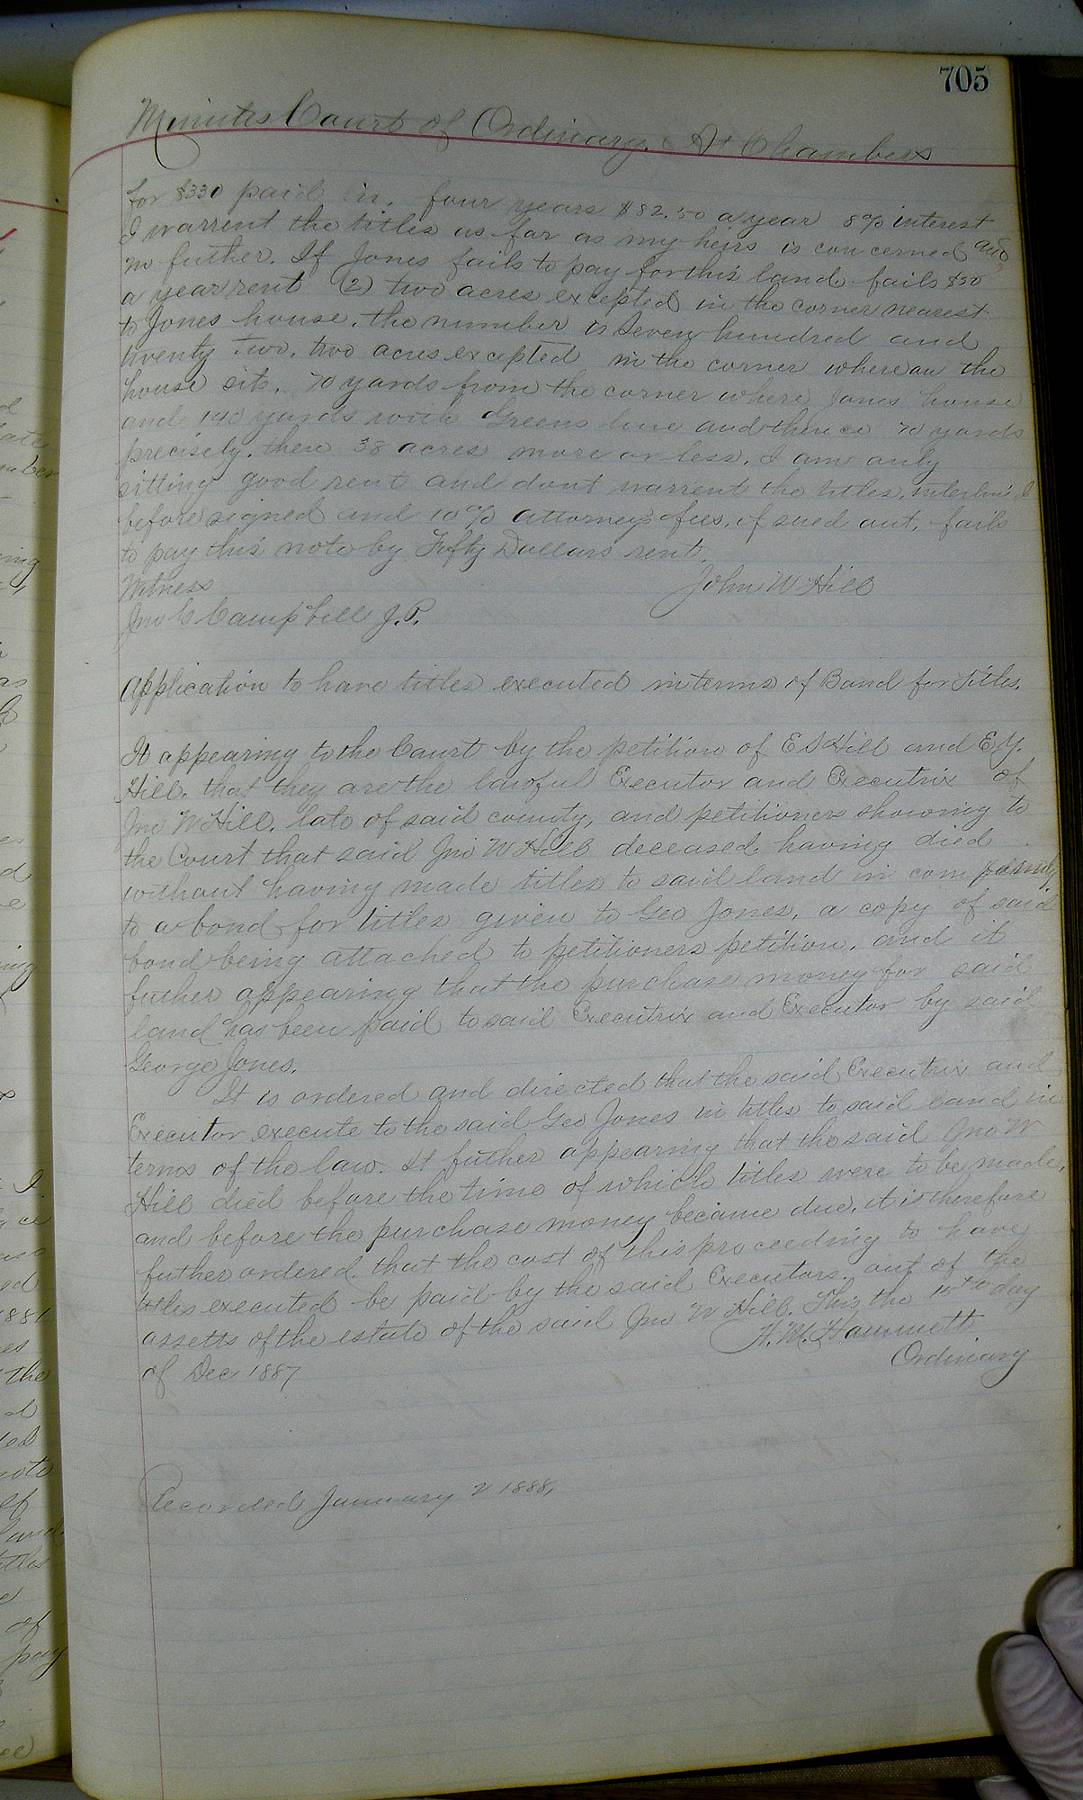 705
Minutes Court of Ordinary. At Chambers
for $330 paid in. four years $82.50 a year 8% interest
I warrent the titles as far as my heirs is concerned and
no futher. If Jones fails to pay for this land fails $50
a year rent (2) two acres excepted in the corner nearest
to Jones house. the number is Seven hundred and
twenty Two. two acres excepted in the corner whereon the
house sits. 70 yards from the corner where Jones house
and 140 yards with Greens line and thence 70 yards
precisely. then 38 acres more or less. I am only
sitting good rent and dont warrent the titles. interlin'd
before signed and 10% attorney's fees, if sued out. fails
to pay this note by Fifty Dollars rent.
Witness John W Hill
Jno C Campbell J.P.
Application to have titles executed in terms of Bond for Titles.
It appearing to the Court by the petition of E S Hill and E Y.
Hill. that they are the lawful Executor and Executrix of
Jno W Hill, late of said county, and petitioners showing to
the Court that said Jno W Hill deceased having died
without having made titles to said land in
to a bond for titles given to Geo Jones, a copy of said
bond being attached to petitioners petition. and it
futher appearing that the purchase money for said
land has been paid to said Executrix and Executor by said
George Jones.
It is ordered and directed that the said Executrix and
Executor execute to the said Geo Jones in titles to said land in
terms of the law. It futher appearing that the said Jno W
Hill died before the time of which titles were to be made,
and before the purchase money became due, it is therefore
futher ordered. that the cost of this proceeding to have
titles executed be paid by the said Executors. out of the
assetts of the estate of the said Jno W Hill. This the 15th day
of Dec 1887
H. M. Hammett
Ordinary
Recorded January 2 1888,